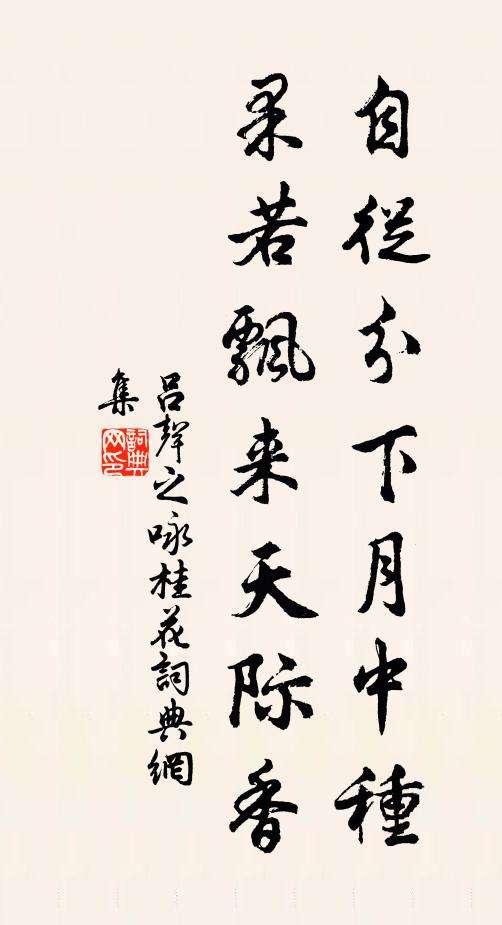 自從分下月中種
果若飄来天际香
吕聲之咏桂花詞典網
集
詞典
网印